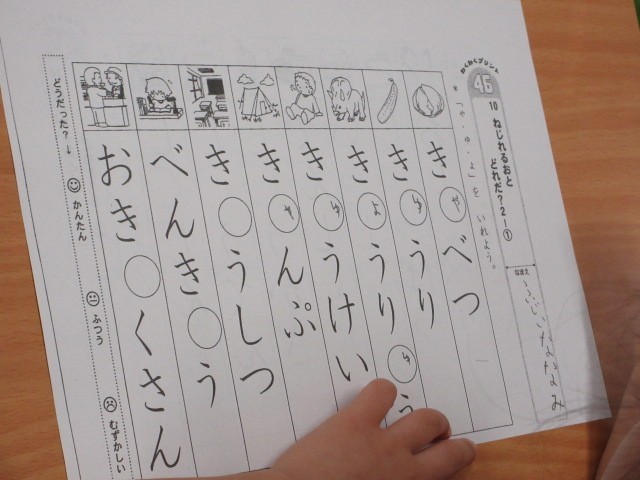 わくわくプリント
45
10 ねじれるおと
どれだ？2-①
*「ゃ・ゅ・ょ」を いれよう。
なまえ
きゃべつ
きゅうり
きょうりゅう
きゅうけい
きゃんぷ
き○うしつ
べんき○う
おき○くさん
どうだった？→ かんたん ふつう むずかしい